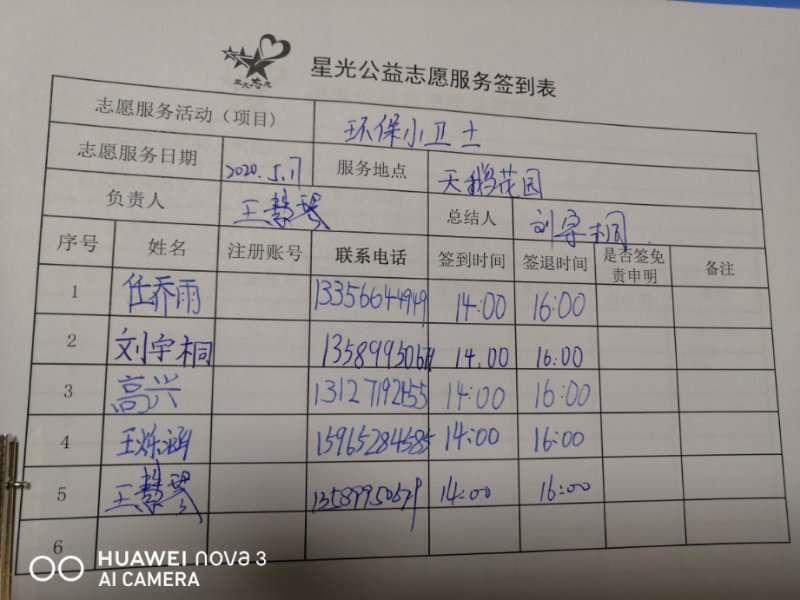 星光公益志愿服务签到表
志愿服务活动（项目） 环保小卫士
志愿服务日期 2020.5.17 服务地点 天鹅花园
负责人 王慧琴 总结人 刘宇桐
序号 姓名 注册账号 联系电话 签到时间 签退时间 是否签免责申明 备注
1 任乔雨 13356644949 14:00 16:00
2 刘宇桐 14.00 16:00
3 高兴 13127192455 14:00 16:00
4 15965284585 14:00 16:00
5 王慧琴 13589950679 14:00 16:00
6
HUAWEI nova 3
AI CAMERA